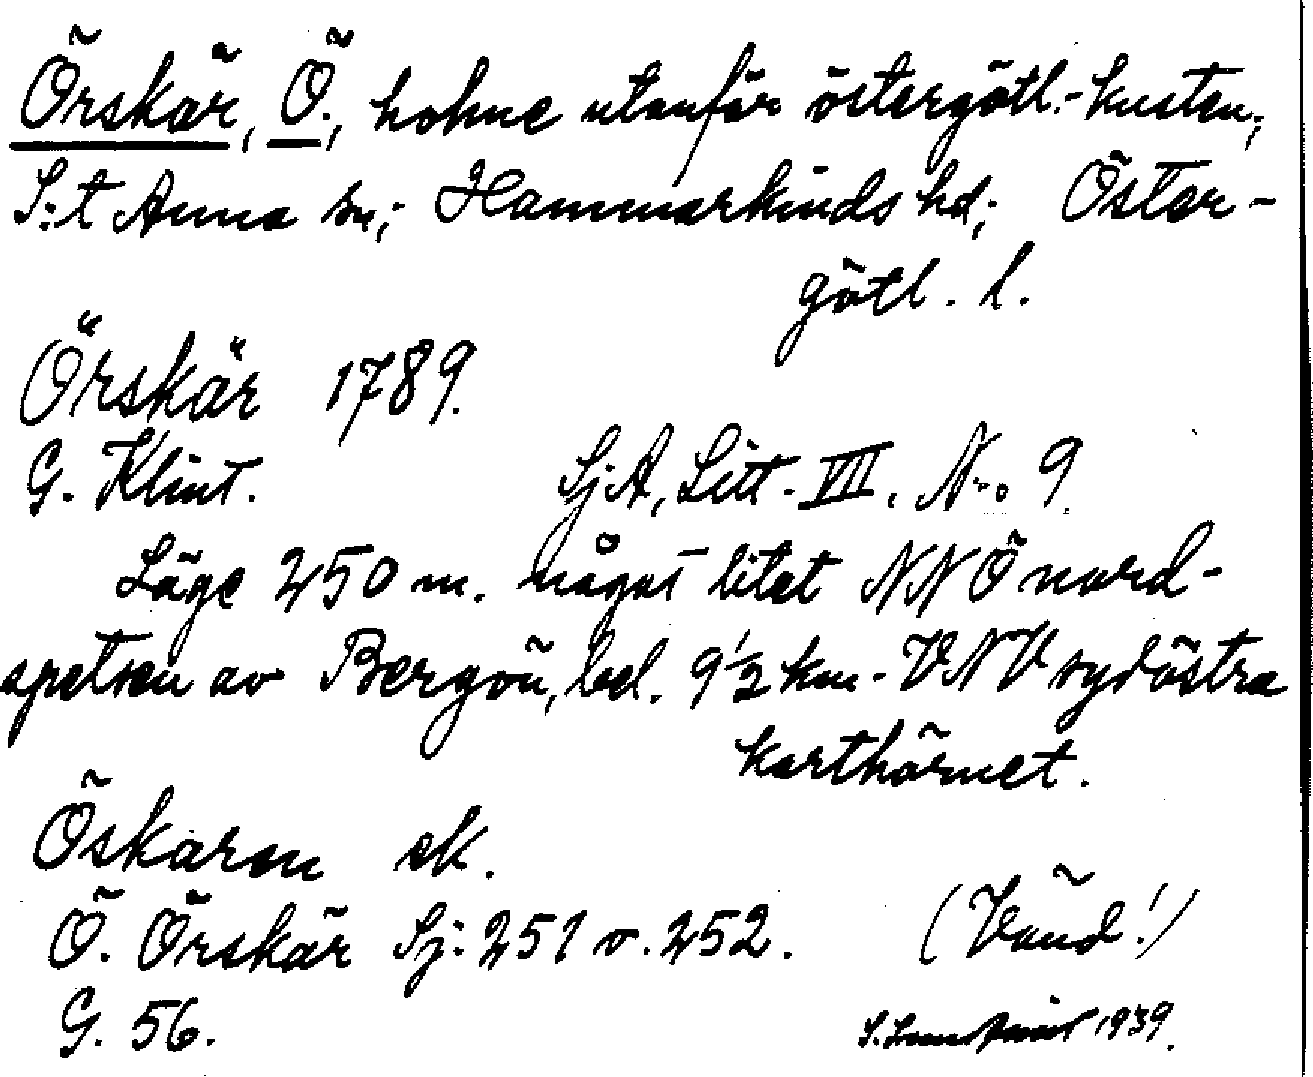 Örskär, Ö., holme utanför östergötl.-kusten,
S:t Anna sn; Hammarkinds hd; Öster-
götl. l.
Örskär 1789.
G. Klint. SjA, Litt. VII, N:o 9.
Läge 250 m. något litet NNÖ nord-
spetsen av Bergön, bel. 9½ km. VNV sydöstra
karthörnet.
Öskaren ek.
Ö. Örskär Sj: 251 o. 252. (Vänd!)
G. 56. 1939.